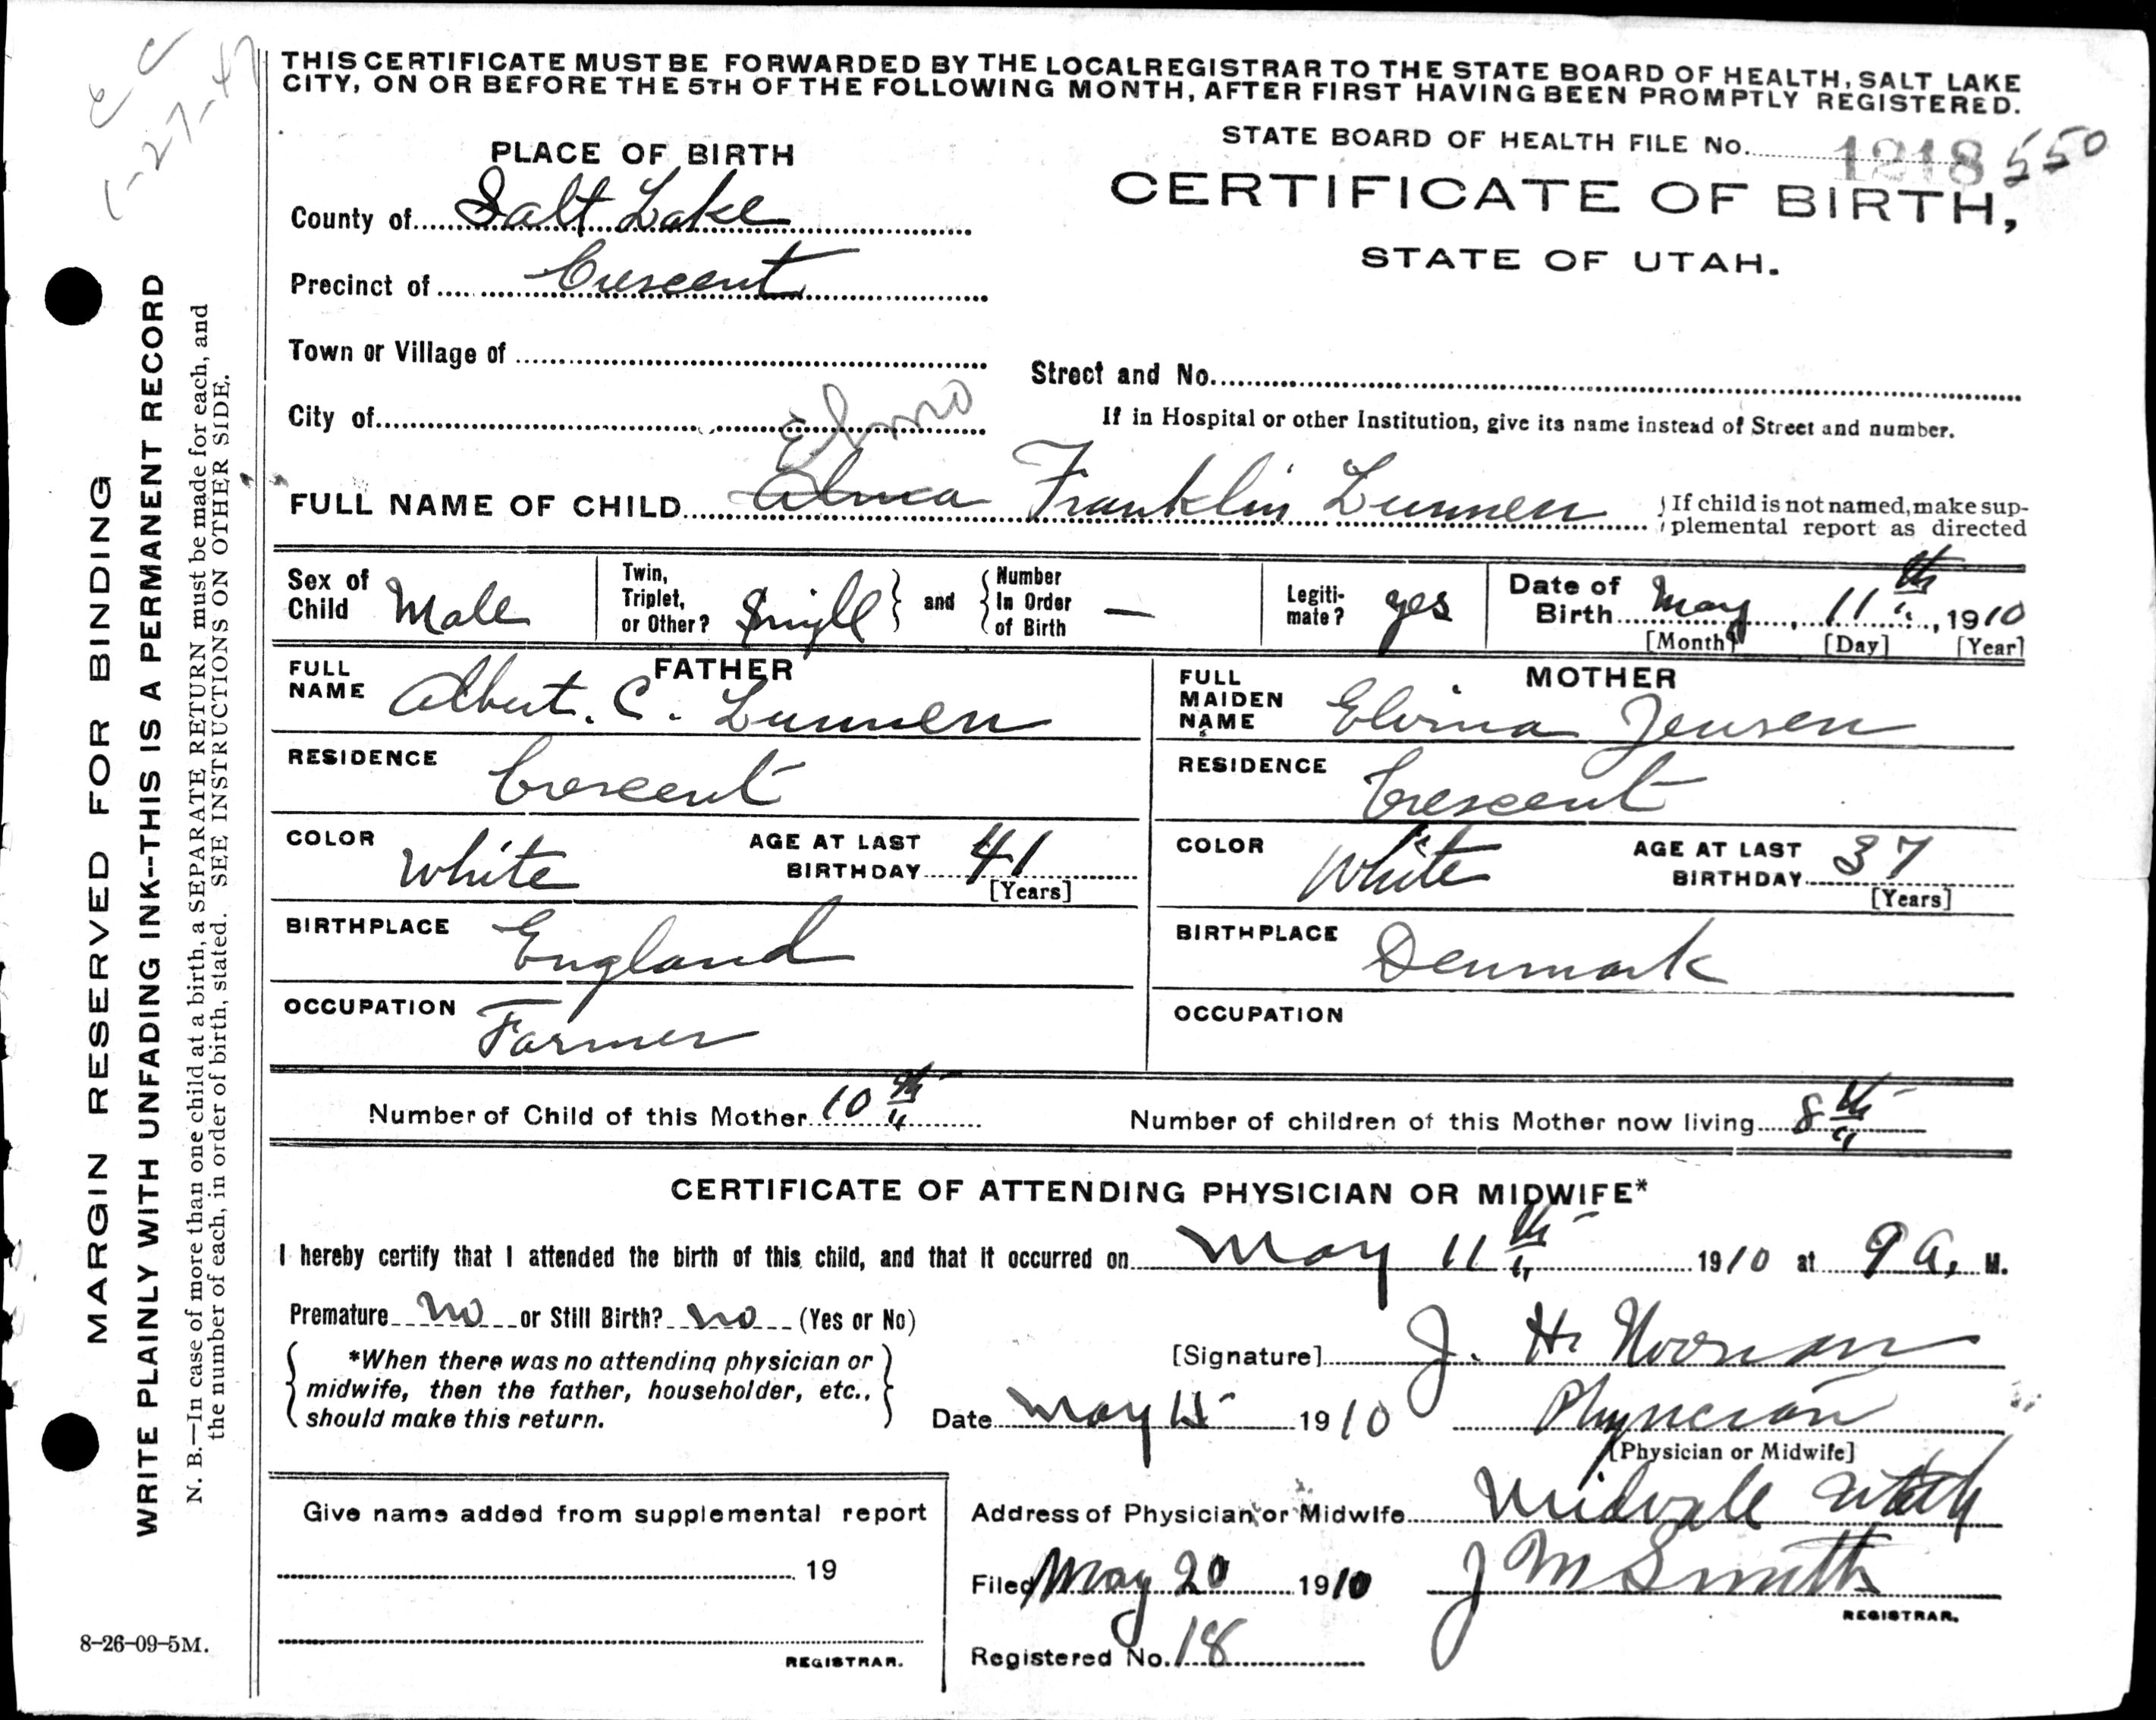 THIS CERTIFICATE MUST BE FORWARDED BY THE LOCAL REGISTRAR TO THE STATE BOARD OF HEALTH, SALT LAKE
CITY, ON OR BEFORE THE 5TH OF THE FOLLOWING MONTH, AFTER FIRST HAVING BEEN PROMPTLY REGISTERED.
STATE BOARD OF HEALTH FILE No. 1218 550
CERTIFICATE OF BIRTH,
STATE OF UTAH.
PLACE OF BIRTH
County of Salt Lake
Precinct of Crescent
Town or Village of
Street and No.
City of
If in Hospital or other Institution, give its name instead of Street and number.
Elmo
FULL NAME OF CHILD Alma Franklin Lunnen
If child is not named, make sup-
plemental report as directed
Sex of Child Male
Twin, Triplet, or Other? Single and Number In Order of Birth —
Legiti-mate? yes
Date of Birth May 11th, 1910
[Month] [Day] [Year]
FATHER
FULL NAME Albert. C. Lunnen
RESIDENCE Crescent
COLOR White AGE AT LAST BIRTHDAY 41
[Years]
BIRTHPLACE England
OCCUPATION Farmer
MOTHER
FULL MAIDEN NAME Elvina Jensen
RESIDENCE Crescent
COLOR White AGE AT LAST BIRTHDAY 37
[Years]
BIRTHPLACE Denmark
OCCUPATION
Number of Child of this Mother 10th
Number of children of this Mother now living 8th
CERTIFICATE OF ATTENDING PHYSICIAN OR MIDWIFE*
I hereby certify that I attended the birth of this child, and that it occurred on May 11th 1910 at 9 a. M.
Premature no or Still Birth? no (Yes or No)
*When there was no attending physician or
midwife, then the father, householder, etc.,
should make this return.
[Signature] J. H. Noonan
Date May 11 1910 Physician
[Physician or Midwife]
Address of Physician or Midwife Midvale Utah
Filed May 20 1910 J M Smith
REGISTRAR.
Registered No. 18
Give name added from supplemental report
19
REGISTRAR.
8-26-09-5M.
MARGIN RESERVED FOR BINDING
WRITE PLAINLY WITH UNFADING INK--THIS IS A PERMANENT RECORD
N. B.—In case of more than one child at a birth, a SEPARATE RETURN must be made for each, and
the number of each, in order of birth, stated. SEE INSTRUCTIONS ON OTHER SIDE.